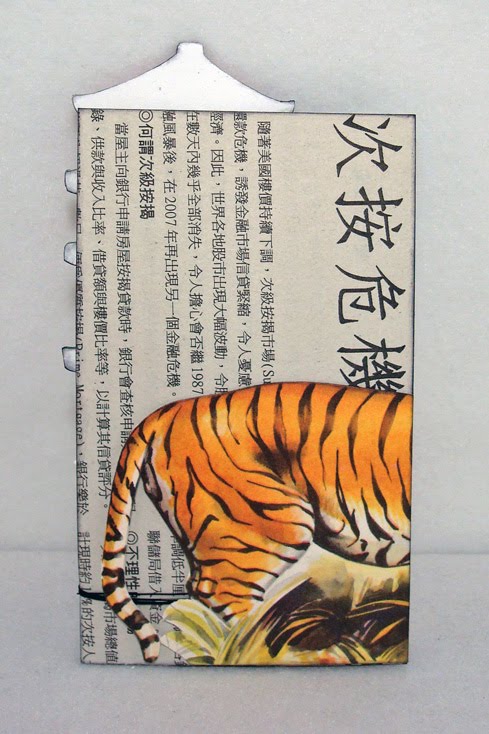 次按危機
隨著美國樓價持續下調，次級按揭市場(Su
還款危機，誘發金融市場信貸緊縮，令人憂慮
經濟。因此，世界各地股市出現大幅波動，令
在數天內幾乎全部消失，令人擔心會否繼1987
融風暴後，在2007年再出現另一個金融危機。
◎何謂次級按揭
當屋主向銀行申請房屋按揭貸款時，銀行會查核申請
錄、供款與收入比率、借貸額與樓價比率等，以計算其信貸評分。
優質按揭(Prime Mortgage)，銀行樂於
調低半厘
聯儲局借入資金
◎不理性
市場總值
計現時約
%的次按人